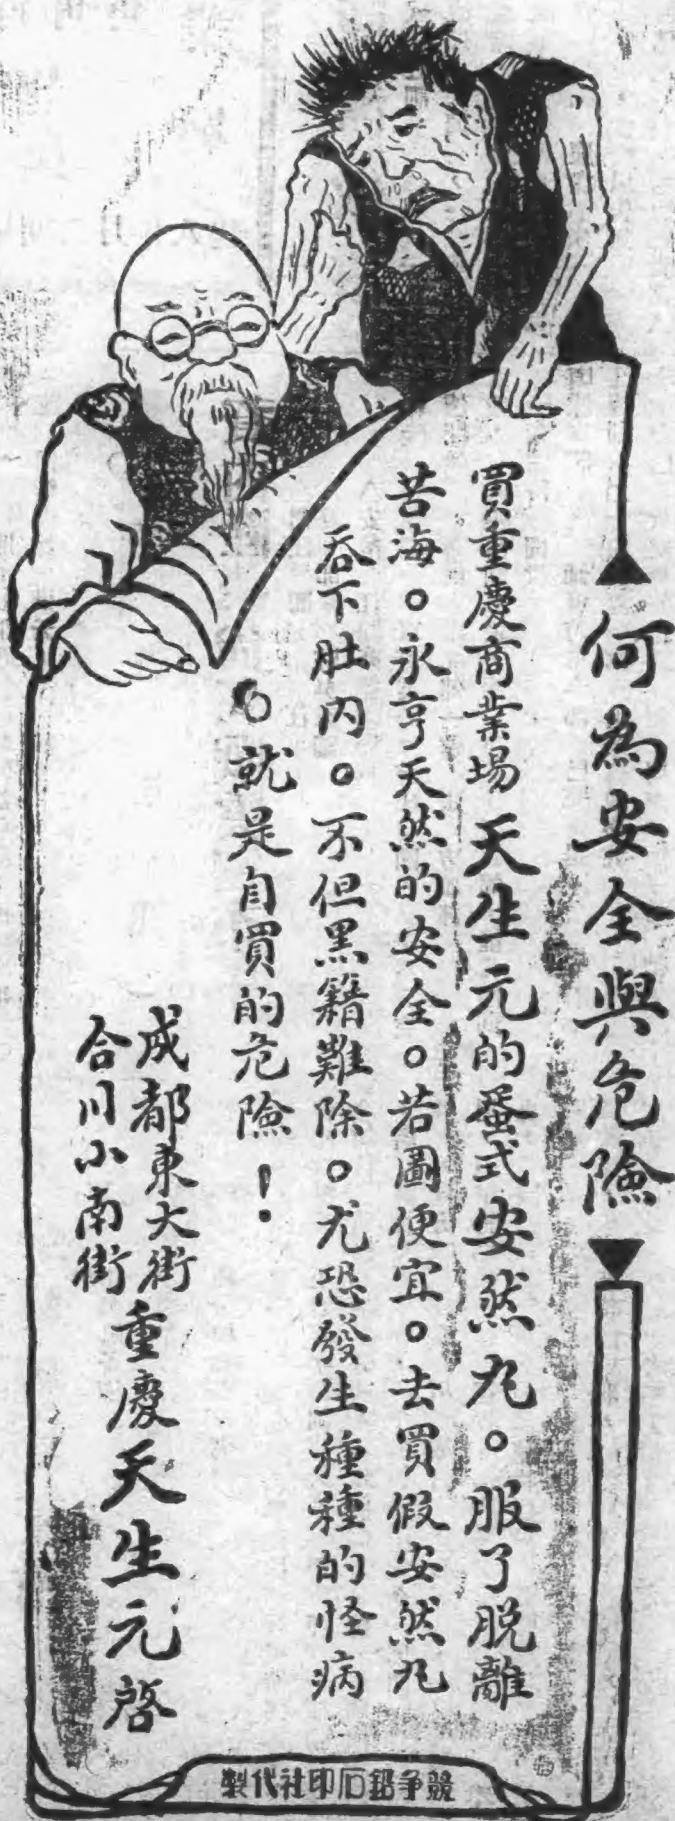 何為安全與危險
買重慶商業場天生元的蛋式安然丸。服了脫離
苦海。永亨天然的安全。若圖便宜。去買假安然丸
吞下肚内。不但黑籍難除。尤恐發生種種的怪病
。就是自買的危險！
成都東大街
合川小南街
重慶天生元啓
競爭鉛石印社代製